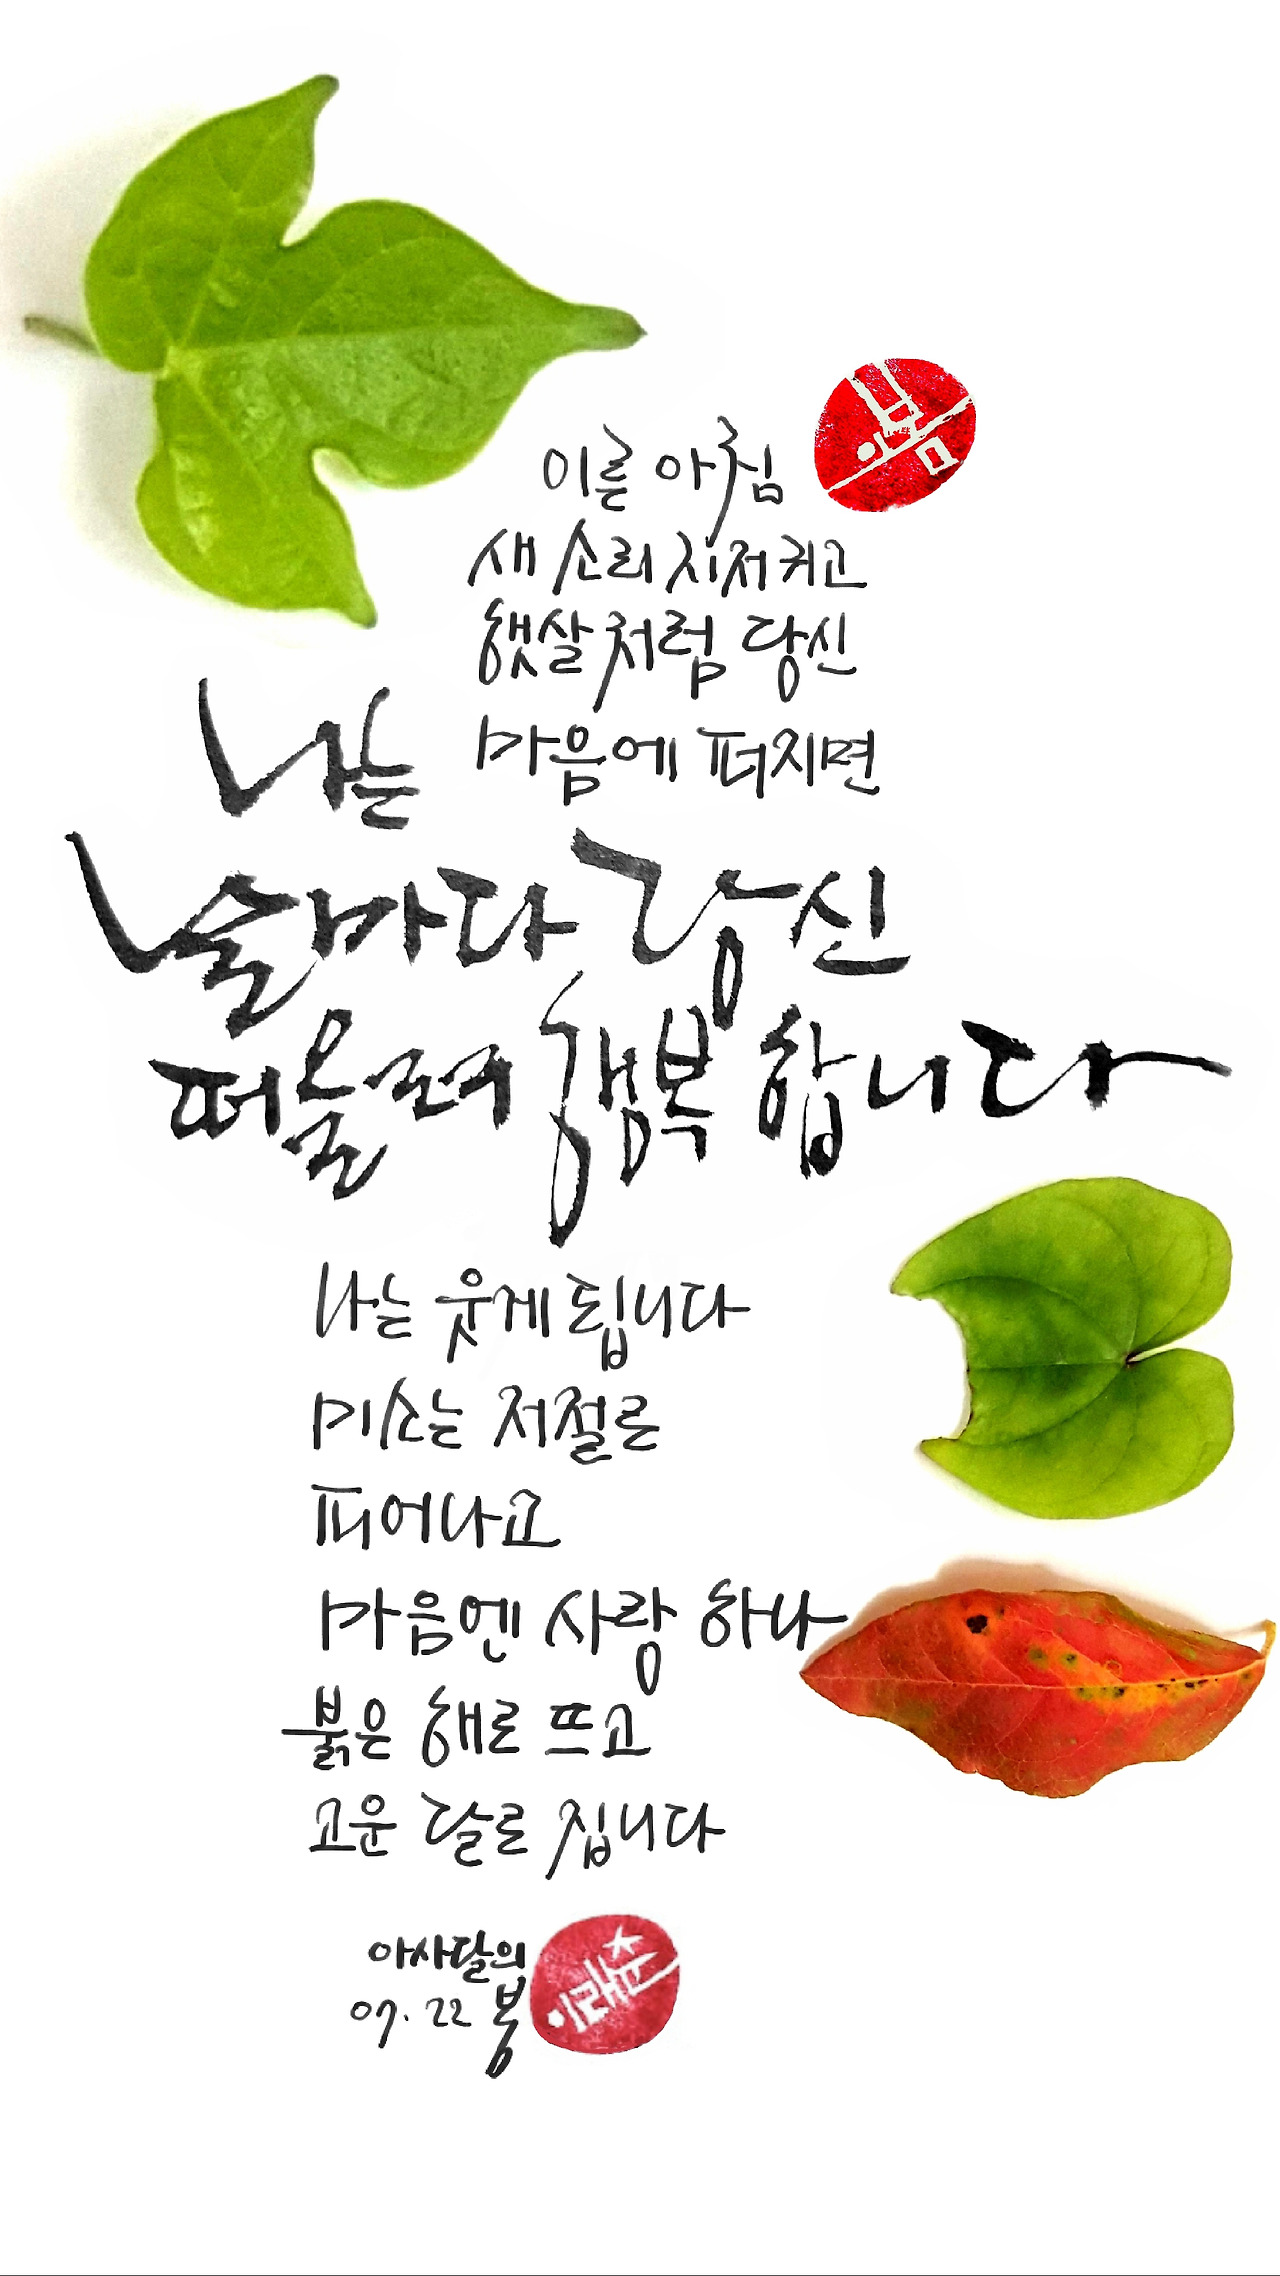 이른 아침
새 소리 지저귀고
햇살처럼 당신
마음에 퍼지면
나는
날마다 당신
떠올려 행복 합니다
나는 웃게 됩니다
미소는 저절로
피어나고
마음엔 사랑 하나
붉은 해로 뜨고
고운 달로 집니다
아사달의
07. 22 봄